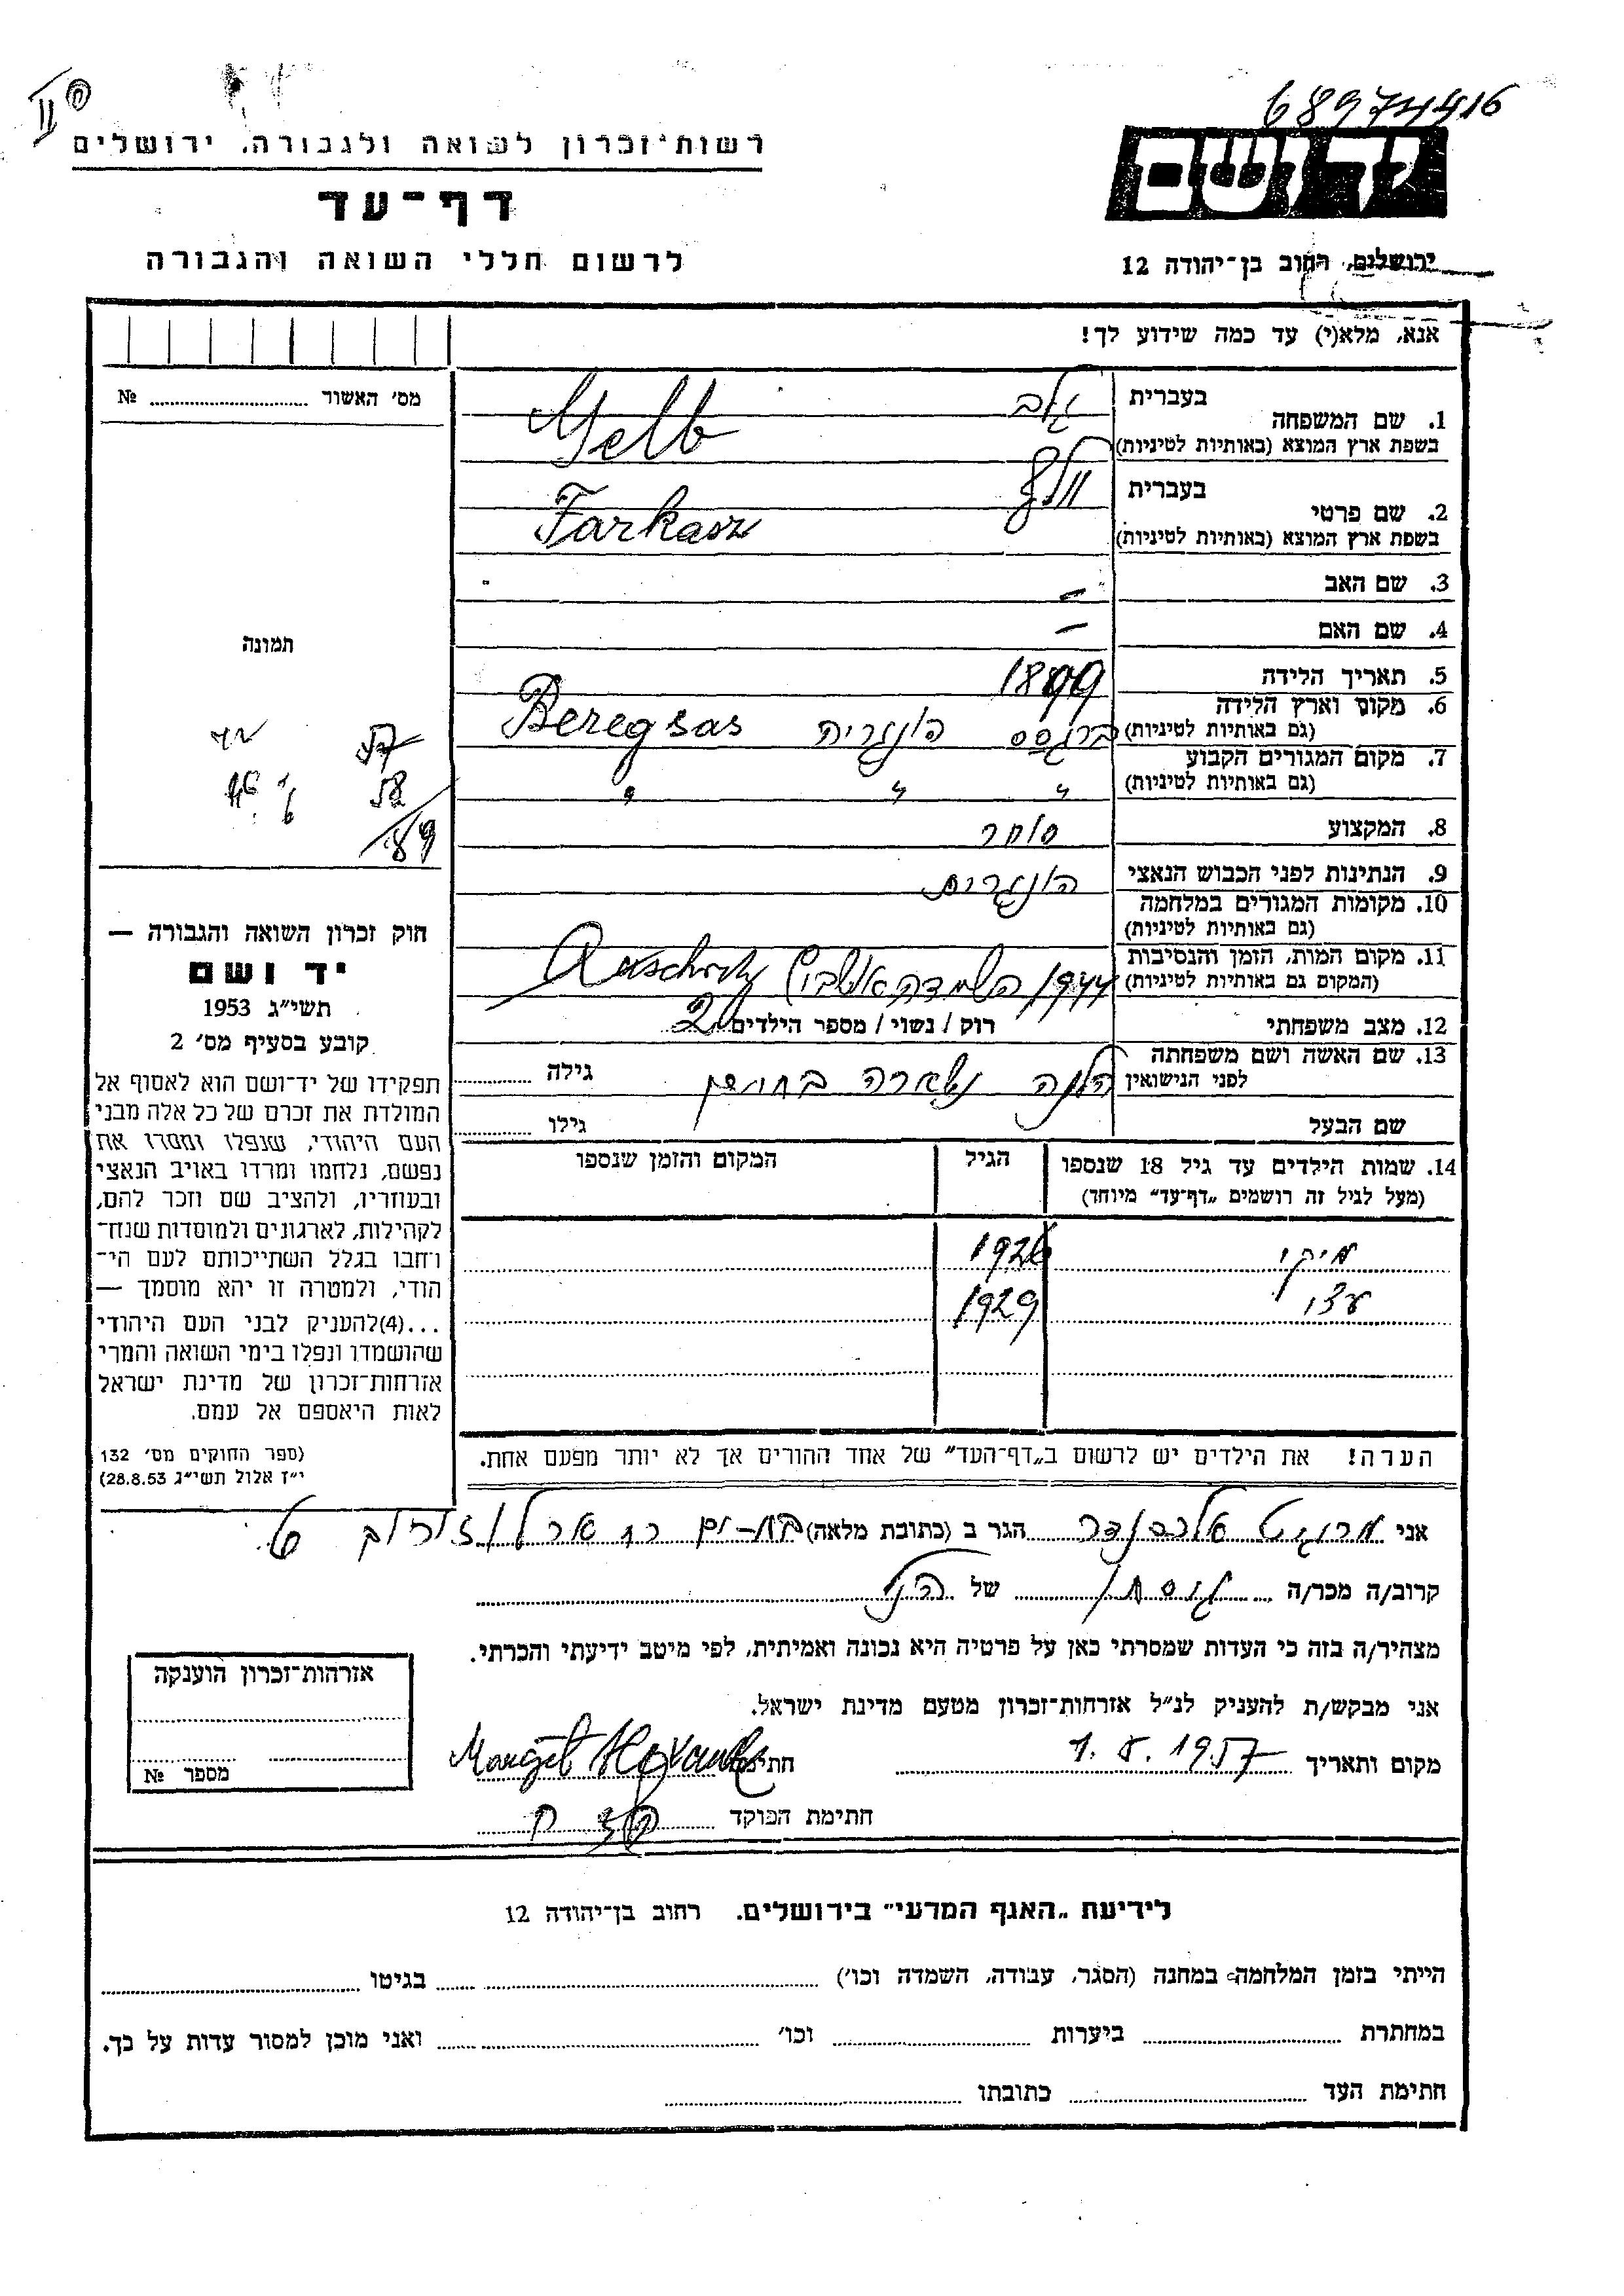 68974416
רשות־זכרון לשואה ולגבורה, ירושלים
יד ושם
דף־עד
לרשום חללי השואה והגבורה
ירושלים, רחוב בן־יהודה 12
אנא, מלא(י) עד כמה שידוע לך!
מס׳ האשור № 
1. שם המשפחה
בעברית גלב
בשפת ארץ המוצא (באותיות לטיניות) Gelb
2. שם פרטי
בעברית
בשפת ארץ המוצא (באותיות לטיניות) Farkasz
3. שם האב –
4. שם האם –
תמונה
5. תאריך הלידה 1899
6. מקום וארץ הלידה
(גם באותיות לטיניות) ברגסס הונגריה Beregsas
7. מקום המגורים הקבוע
(גם באותיות לטיניות) " " "
8. המקצוע סוחר
9. הנתינות לפני הכבוש הנאצי הונגרית
10. מקומות המגורים במלחמה
(גם באותיות לטיניות)
11. מקום המות, הזמן והנסיבות
(המקום גם באותיות לטיניות) 1944 השמדה
12. מצב משפחתי רוק / נשוי / מספר הילדים 2
13. שם האשה ושם משפחתה
לפני הנישואין גילה
שם הבעל גילו
57
58
89
חוק זכרון השואה והגבורה —
יד ושם
תשי״ג 1953
קובע בסעיף מס׳ 2
תפקידו של יד־ושם הוא לאסוף אל
המולדת את זכרם של כל אלה מבני
העם היהודי, שנפלו ומסרו את
נפשם, נלחמו ומרדו באויב הנאצי
ובעוזריו, ולהציב שם וזכר להם,
לקהילות, לארגונים ולמוסדות שנח־
רחבו בגלל השתייכותם לעם הי־
הודי, ולמטרה זו יהא מוסמך —
...(4)להעניק לבני העם היהודי
שהושמדו ונפלו בימי השואה והמרי
אזרחות־זכרון של מדינת ישראל
לאות היאספם אל עמם.
(ספר החוקים מס׳ 132
י״ז אלול תשי״ג 28.8.53)
14. שמות הילדים עד גיל 18 שנספו הגיל המקום והזמן שנספו
(מעל לגיל זה רושמים „דף־עד״ מיוחד)
מיקי 1926
1929
הערה! את הילדים יש לרשום ב„דף־העד״ של אחד ההורים אך לא יותר מפעם אחת.
אני מרגיט אלכסנדר הגר ב (כתובת מלאה) בת-ים
קרוב/ה מכר/ה גיסתו של הנ״ל
מצהיר/ה בזה כי העדות שמסרתי כאן על פרטיה היא נכונה ואמיתית, לפי מיטב ידיעתי והכרתי.
אני מבקש/ת להעניק לנ״ל אזרחות־זכרון מטעם מדינת ישראל.
מקום ותאריך 1.5.1957 חתימה Margit
חתימת הפוקד
אזרחות־זכרון הוענקה
מספר №
לידיעת „האגף המדעי״ בירושלים. רחוב בן־יהודה 12
הייתי בזמן המלחמה במחנה (הסגר, עבודה, השמדה וכו׳) בגיטו
במחתרת ביערות וכו׳ ואני מוכן למסור עדות על כך.
חתימת העד כתובתו